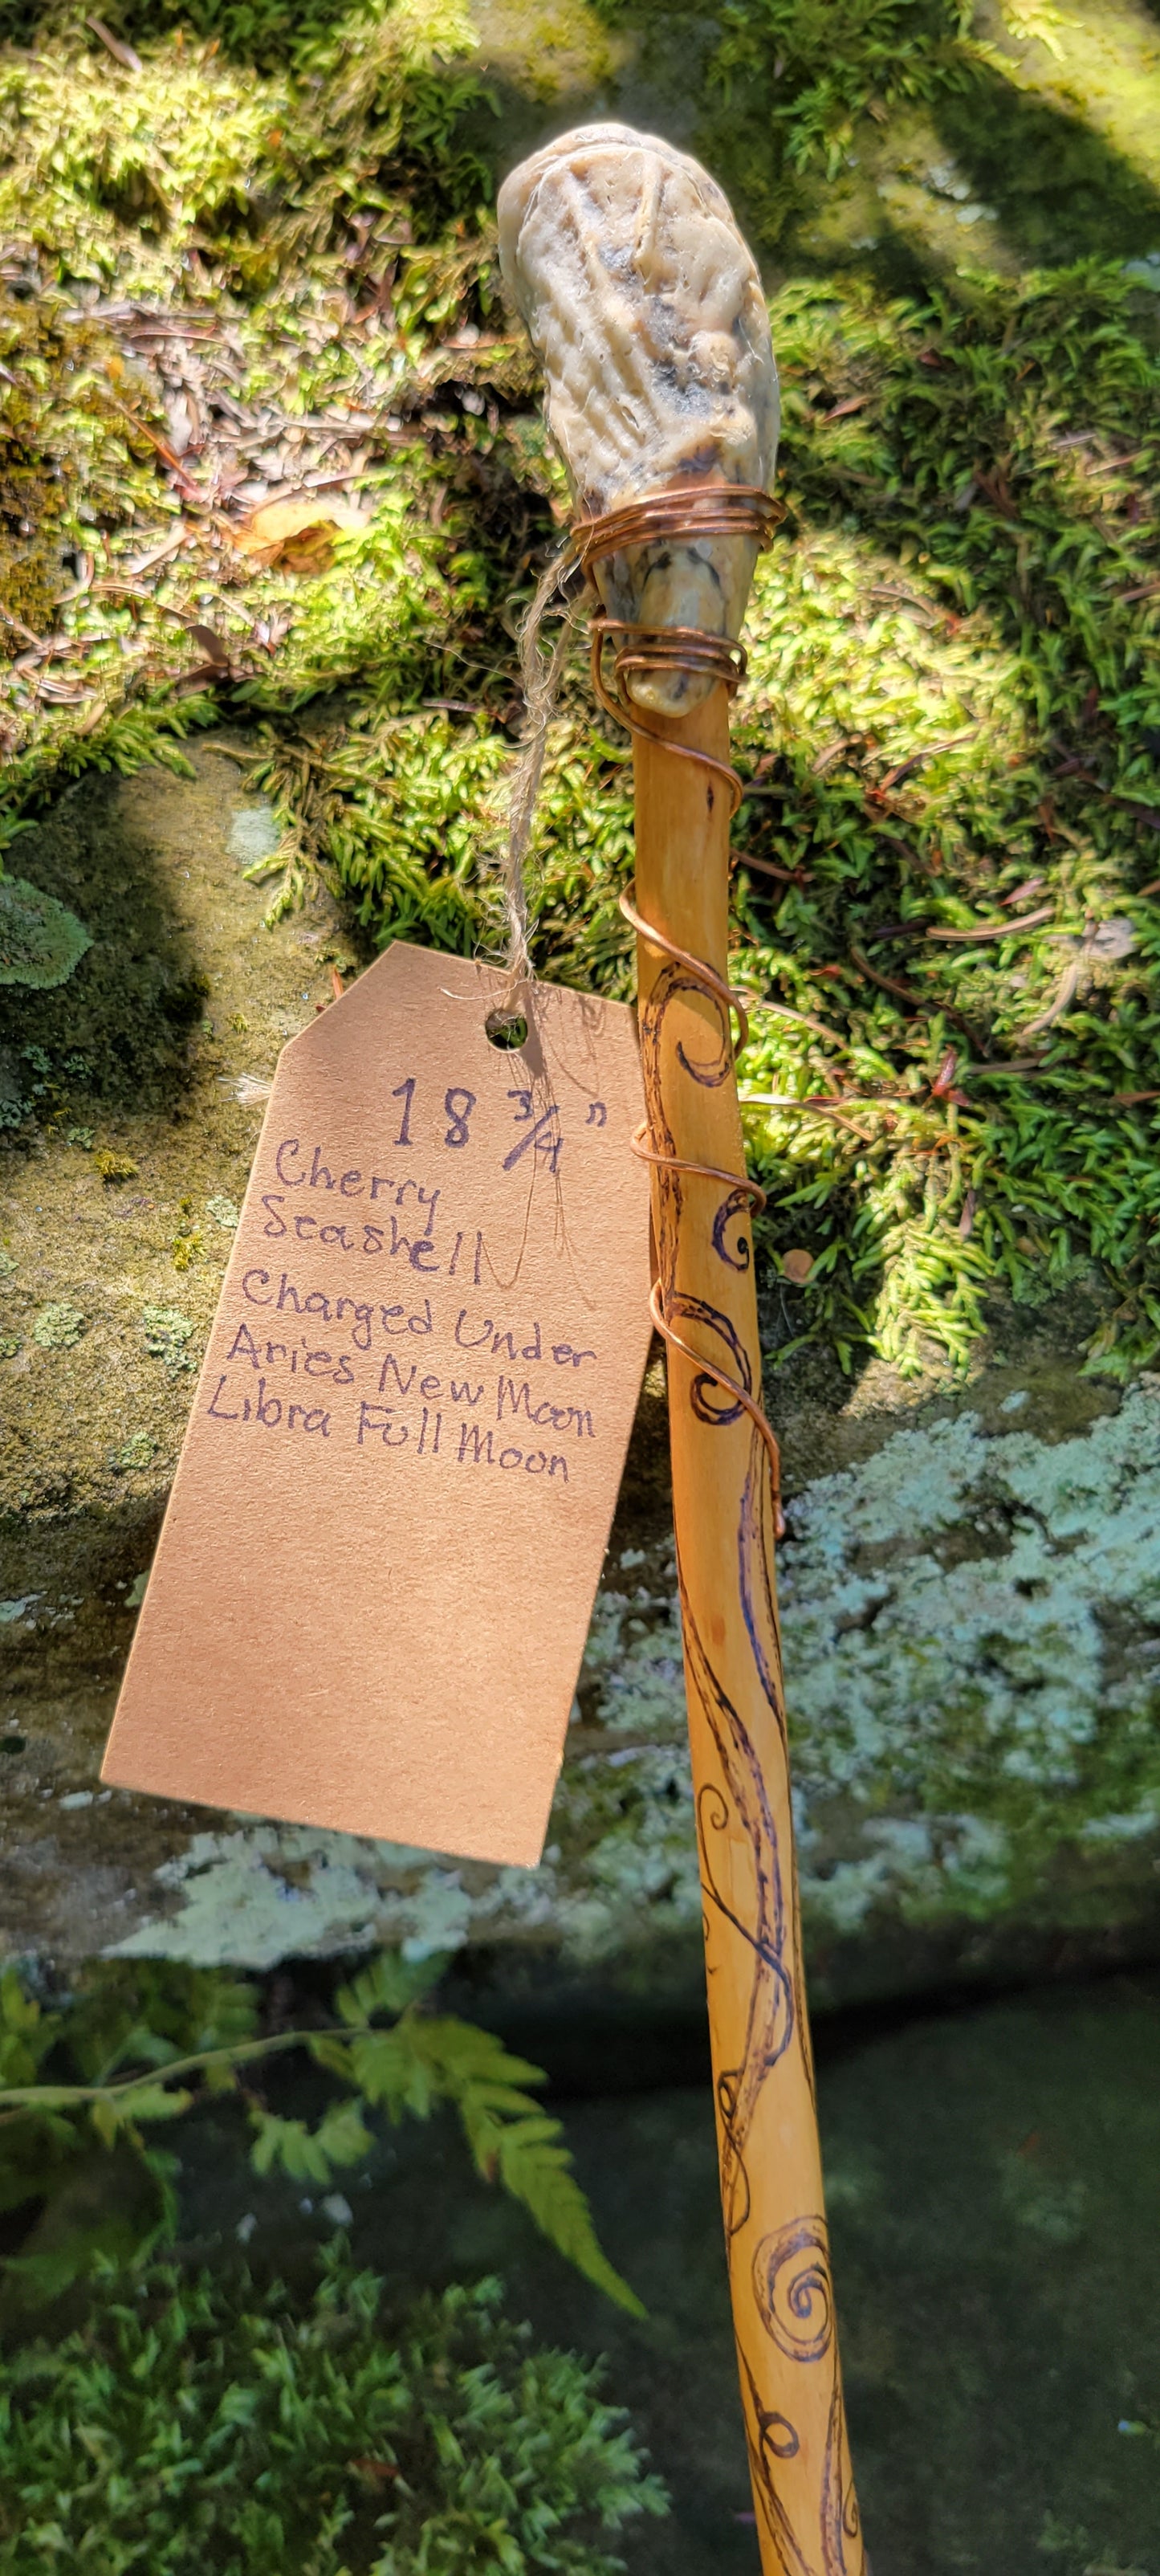 18 3/4"
Cherry
Seashell
Charged Under
Aries New Moon
Libra Full Moon